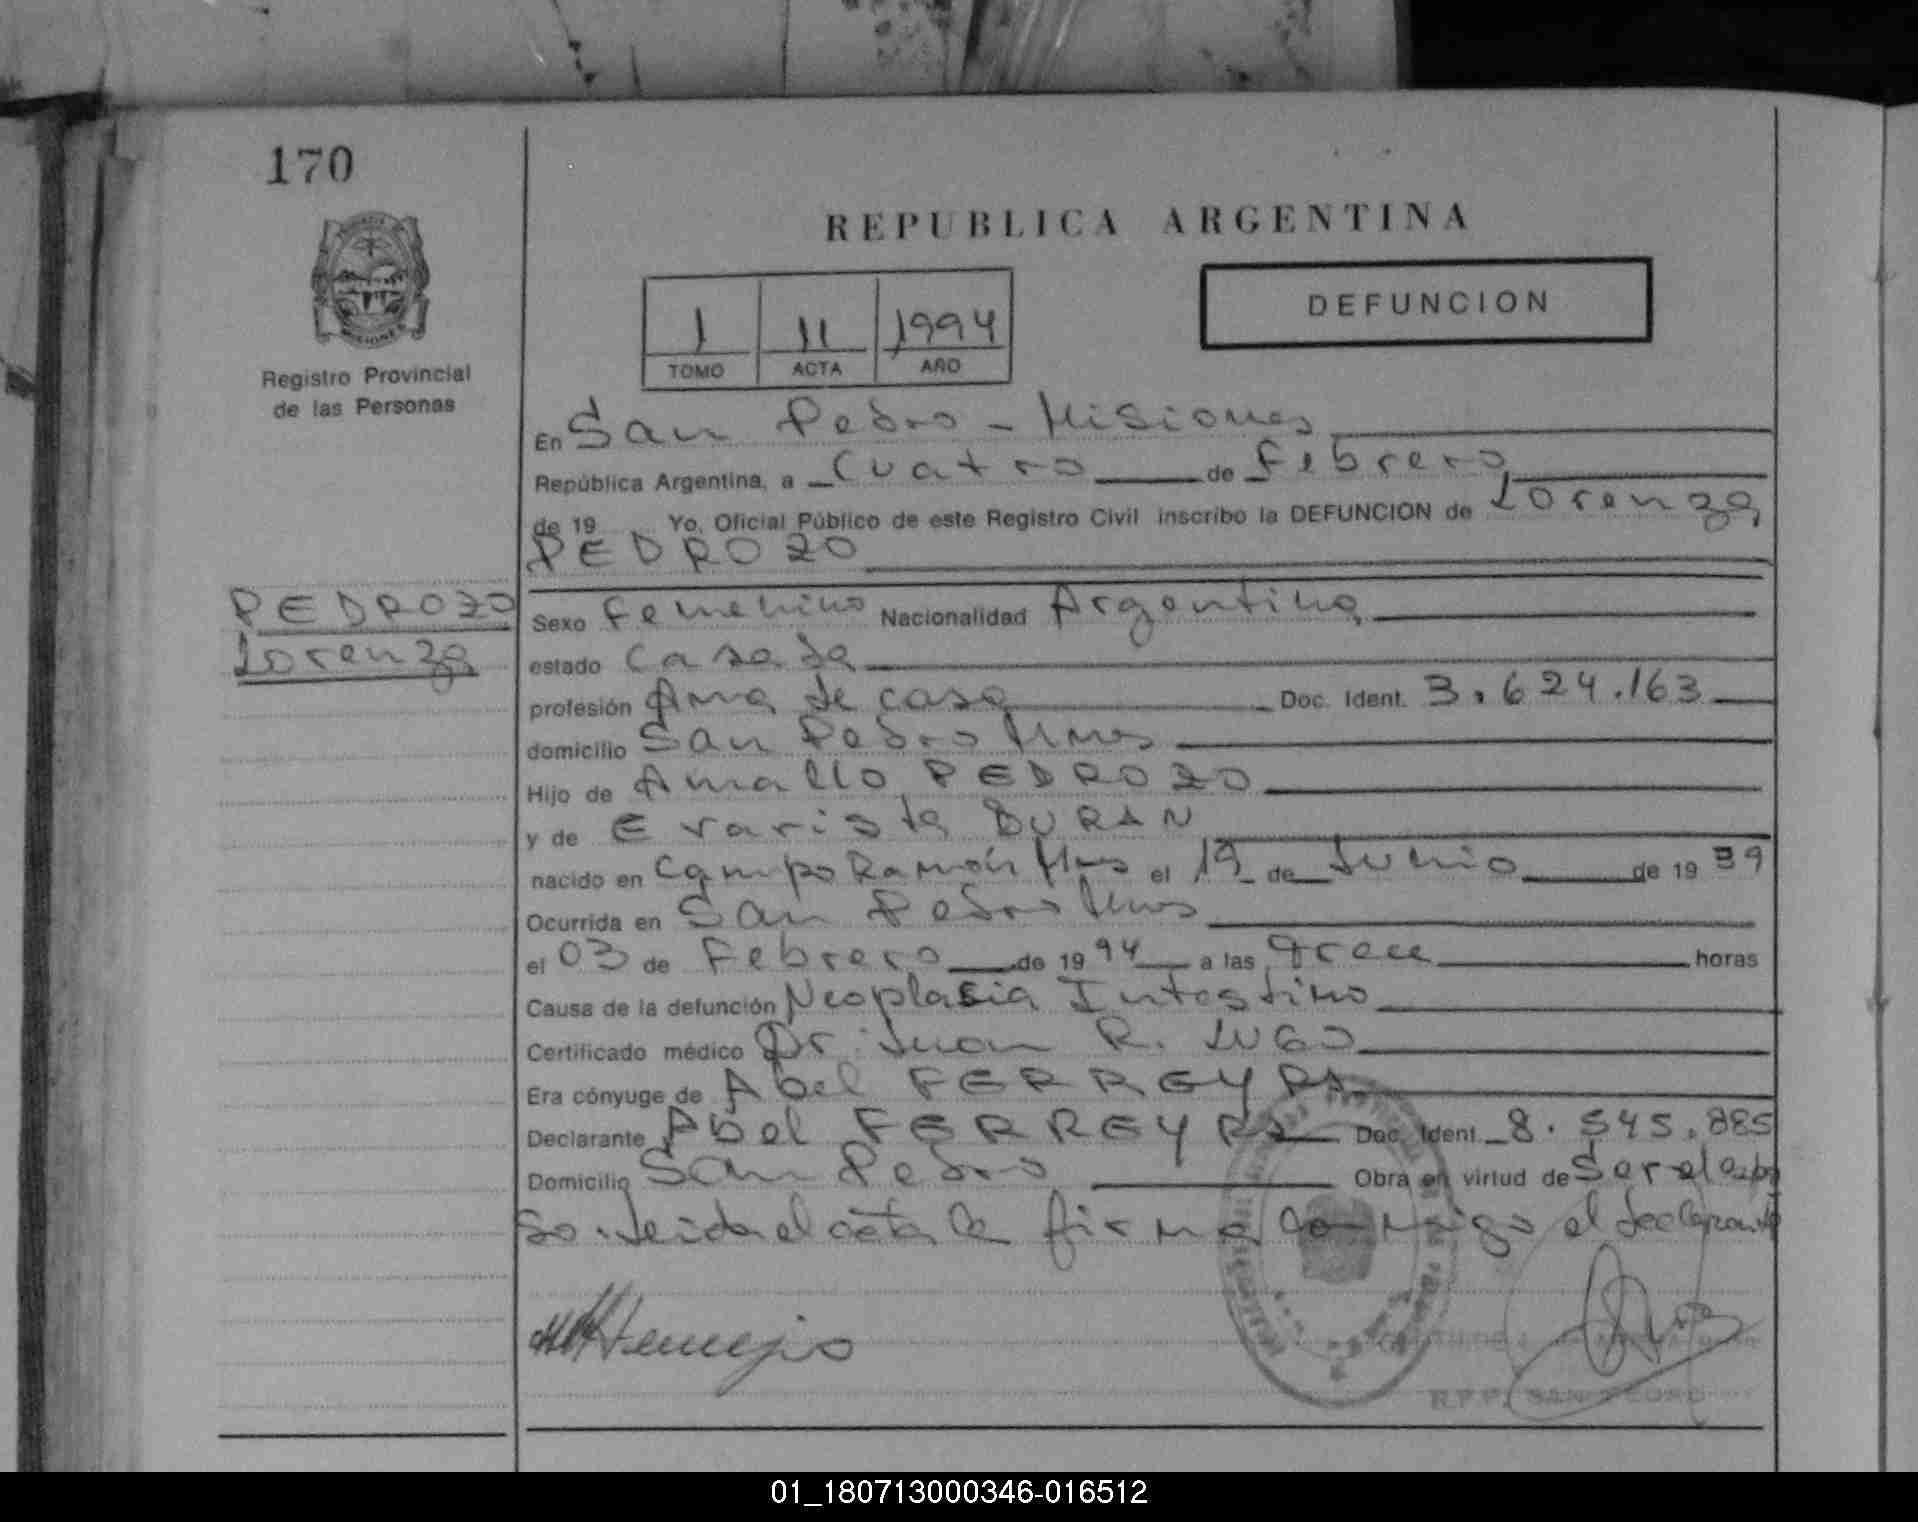 170
REPUBLICA ARGENTINA
DEFUNCION
1 11 1994
TOMO ACTA AÑO
MISIONES
Registro Provincial
de las Personas
En San Pedro - Misiones
República Argentina, a Cuatro de Febrero
de 19 Yo, Oficial Público de este Registro Civil inscribo la DEFUNCION de Lorenza
PEDROZO
PEDROZO
Lorenza
Sexo Femenino Nacionalidad Argentina
estado Casada
profesión Ama de casa Doc. Ident. 3.624.163
domicilio San Pedro Mnes
Hijo de Amalio PEDROZO
y de Evarista DURAN
nacido en Campo Ramón Mnes el 19 de Junio de 19 39
Ocurrida en San Pedro Mnes
el 03 de Febrero de 19 94 a las trece horas
Causa de la defunción Neoplasia Intestino
Certificado médico Dr. Juan R. LUGO
Era cónyuge de Abel FERREYRA
Declarante Abel FERREYRA Doc. Ident. 8.545.885
Domicilio San Pedro Obra en virtud de Ser el espo
so. Leida el acta la firma conmigo el declarante
R.P.P. SAN PEDRO
01_180713000346-016512